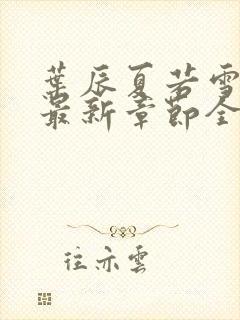 葉辰夏若雪
最新章節全
往亦雲